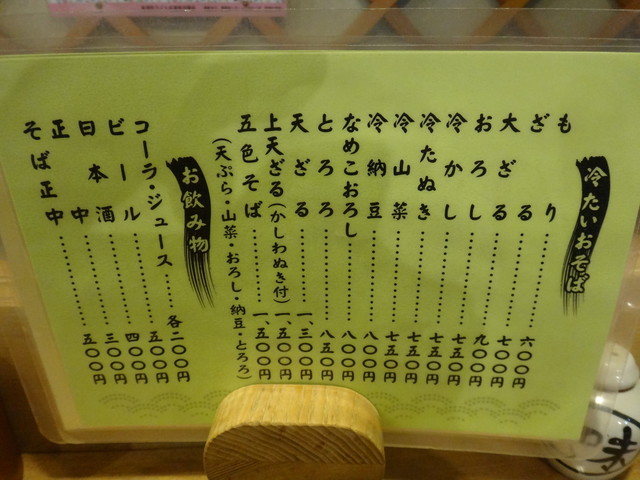 冷たいおそば
もり……………六〇〇円
ざる……………七〇〇円
大ざる……………九〇〇円
おろし……………七五〇円
冷かし……………七五〇円
冷たぬき……………七五〇円
冷山菜……………七五〇円
冷納豆……………八〇〇円
なめこおろし……………八〇〇円
とろろ……………八五〇円
天ざる……………一、三〇〇円
上天ざる(かしわぬき付)…一、五〇〇円
五色そば……………一、五〇〇円
(天ぷら・山菜・おろし・納豆・とろろ)
お飲み物
コーラ・ジュース……各二〇〇円
ビール……………五〇〇円
日本酒……………四〇〇円
正中……………三〇〇円
そば正中……………五〇〇円
味